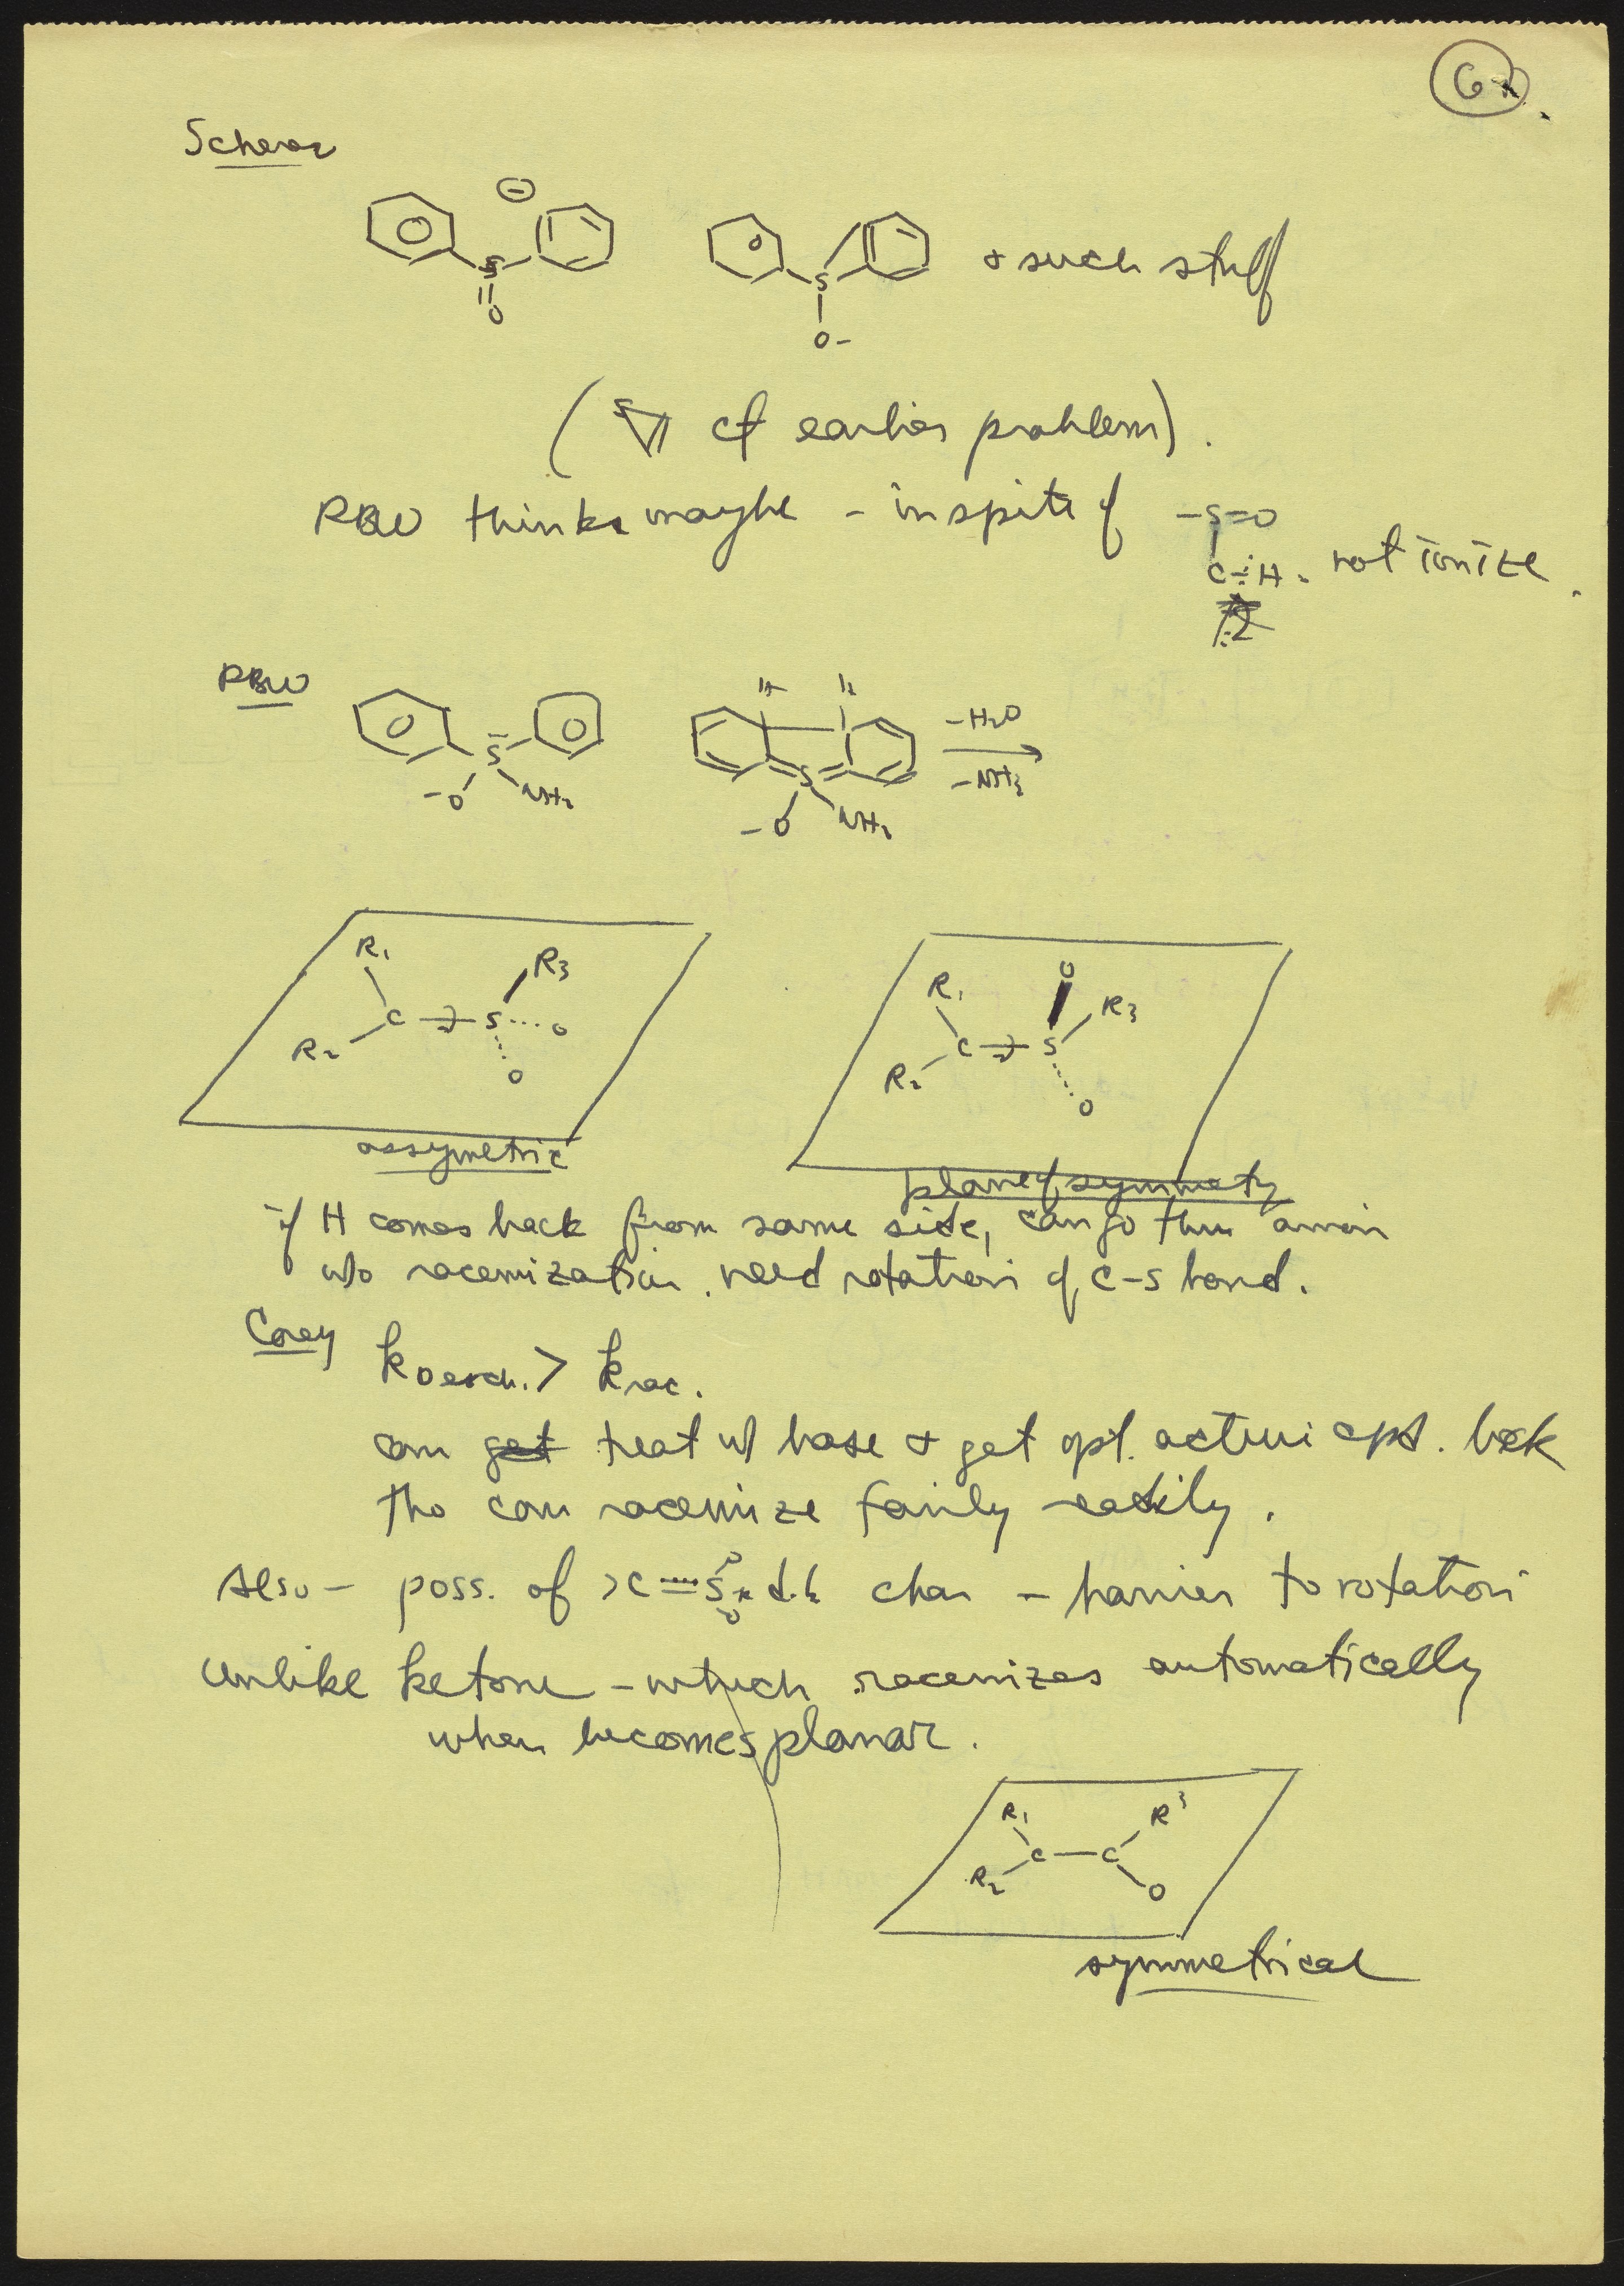 6
Scherer
⊖
S
O
S
O-
+ such stuff
(S cf earlier problem).
RBW thinks maybe - in spite of -S=O
C-H - not ionize.
RBW
S
-O NH2
H H
S
-O NH2
-H2O
-NH3
R1 R3
C S O
R2 O
assymetric
O
R1 R3
C S
R2 O
plane of symmety
if H comes back from same side, can go thru anion
w/o racemization. need rotation of C-S bond.
Corey
kD exch. > krac.
can get treat w/ base + get opt. active cpd. back
tho can racemize fairly easily.
Also - poss. of >C=S d.b. char - barrier to rotation
O
O
unlike ketone - which racemizes automatically
when becomes planar.
R1 R3
C-C
R2 O
symmetrical